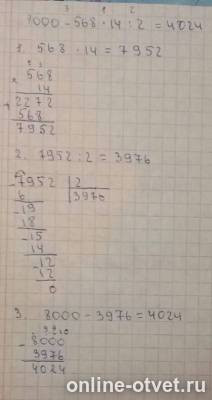 3 1 2
8000 - 568 · 14 : 2 = 4024
1. 568 · 14 = 7952
2 3
× 568
14
+ 2272
568
7952
2. 7952 : 2 = 3976
- 7952 | 2
6 | 3976
- 19
18
- 15
14
- 12
12
0
3. 8000 - 3976 = 4024
9 9 10
- 8000
3976
4024
online-otvet.ru